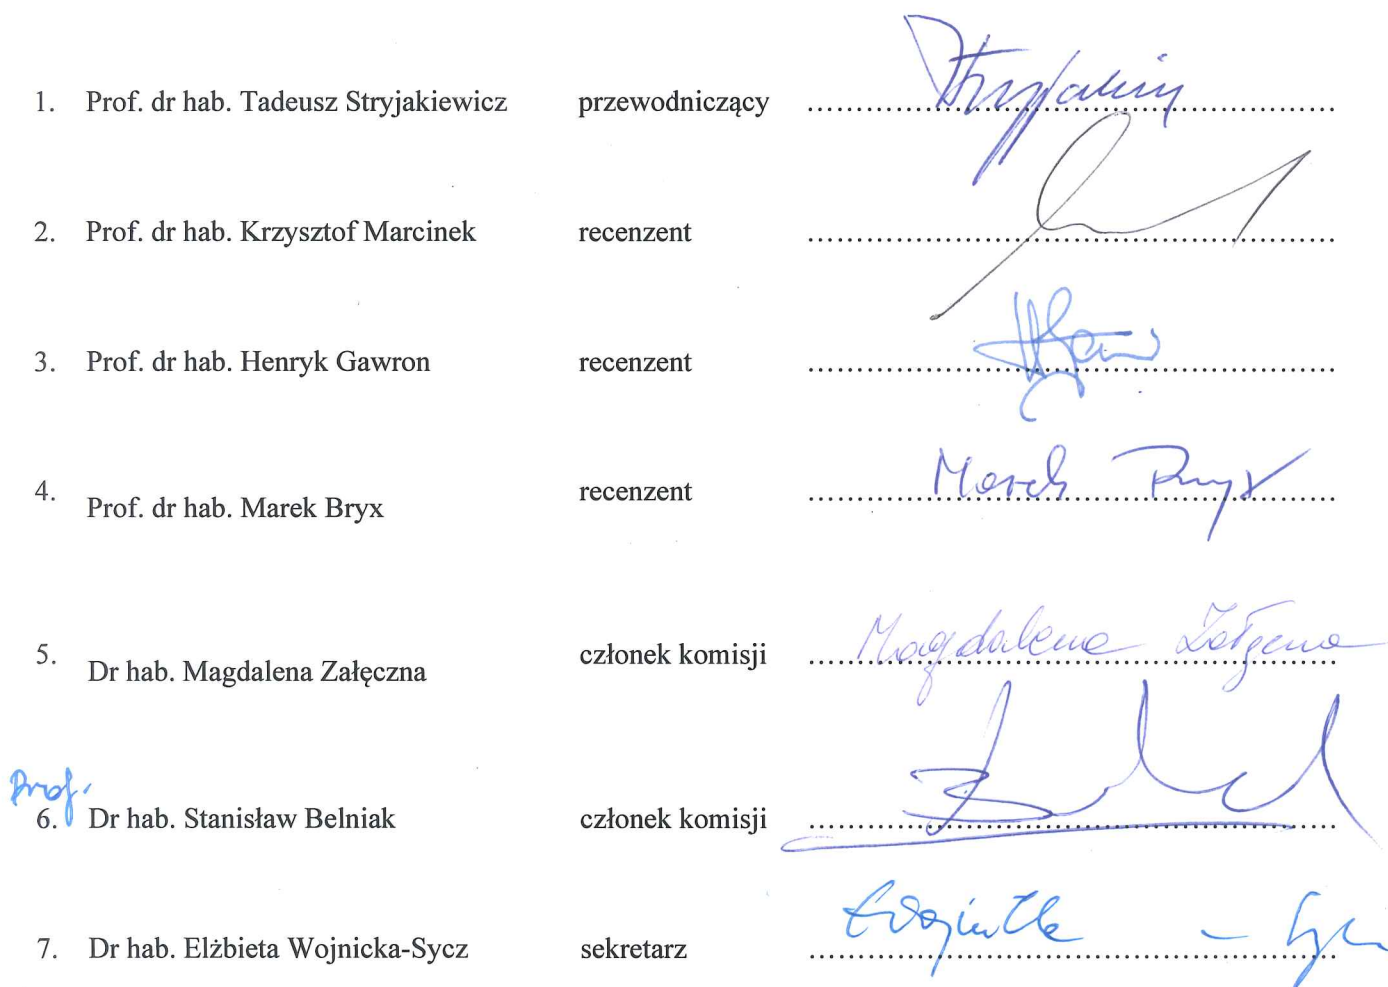 1. Prof. dr hab. Tadeusz Stryjakiewicz przewodniczący ........................................
2. Prof. dr hab. Krzysztof Marcinek recenzent ........................................
3. Prof. dr hab. Henryk Gawron recenzent ........................................
4. Prof. dr hab. Marek Bryx recenzent Marek Bryx
5. Dr hab. Magdalena Załęczna członek komisji Magdalena Załęczna
Prof.
6. Dr hab. Stanisław Belniak członek komisji ........................................
7. Dr hab. Elżbieta Wojnicka-Sycz sekretarz ........................................